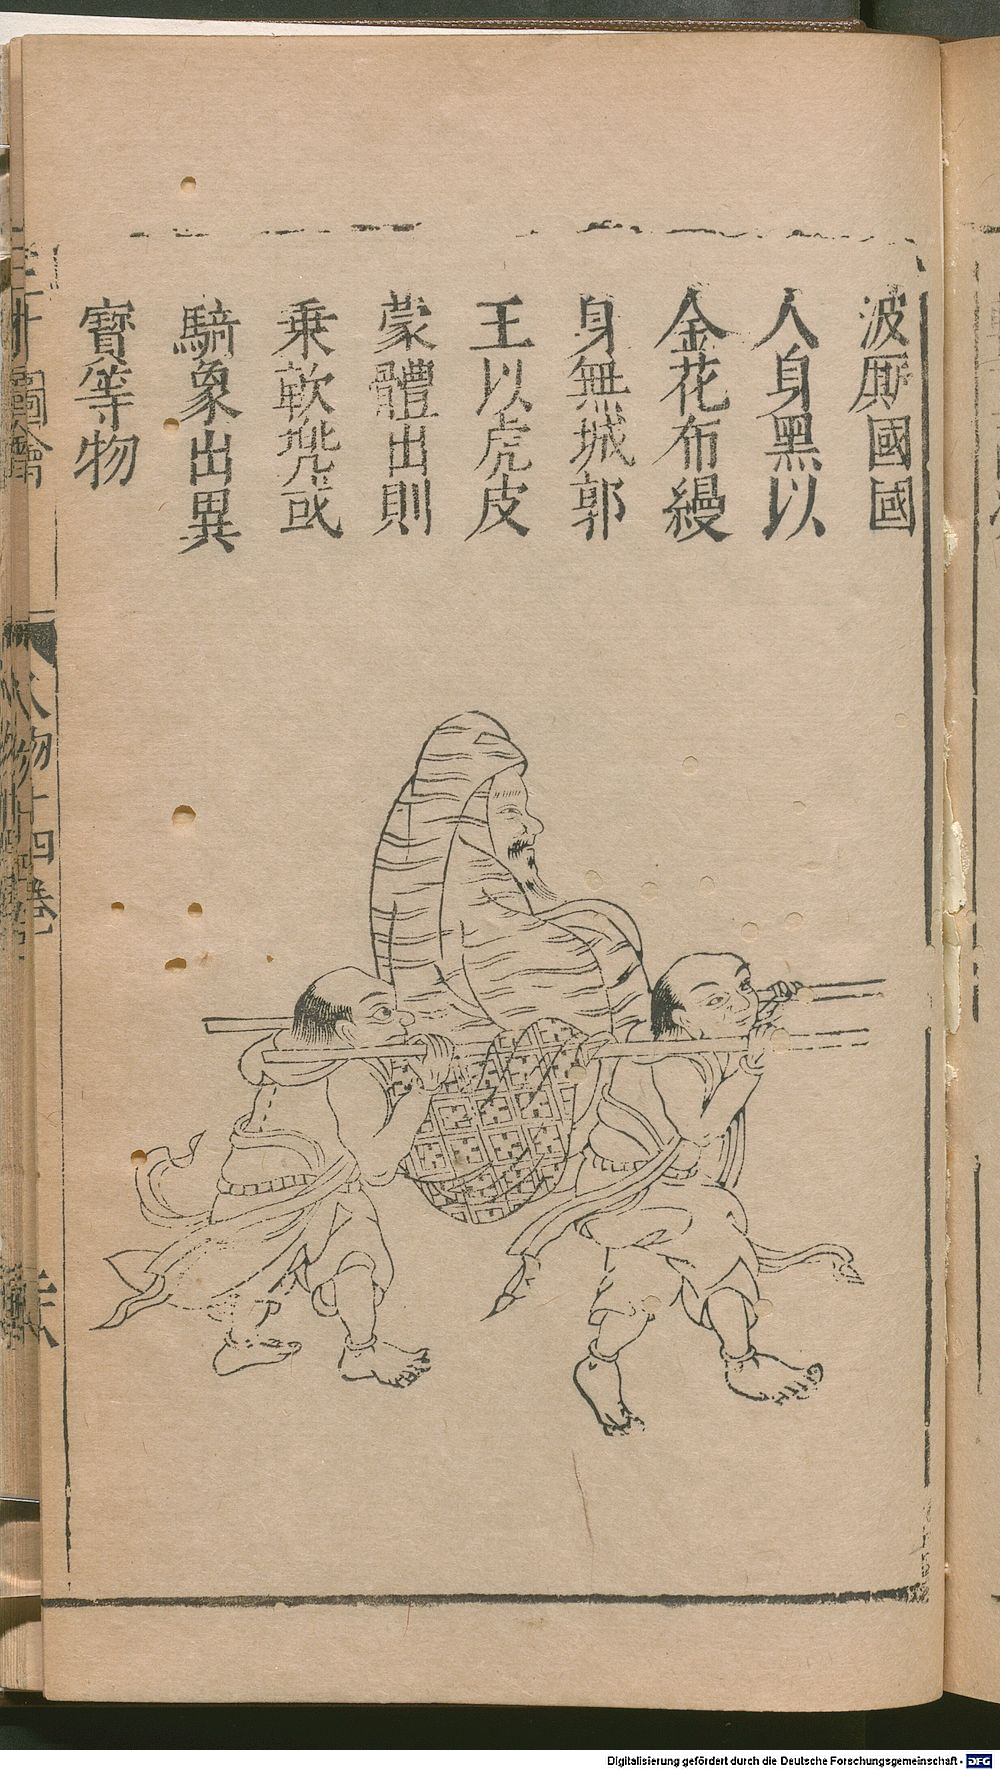 波厮國國
人身黑以
金花布縵
身無城郭
王以虎皮
蒙體出則
乗軟兠或
騎象出異
寳等物
圖會
人物十四卷
Digitalisierung gefördert durch die Deutsche Forschungsgemeinschaft - DFG